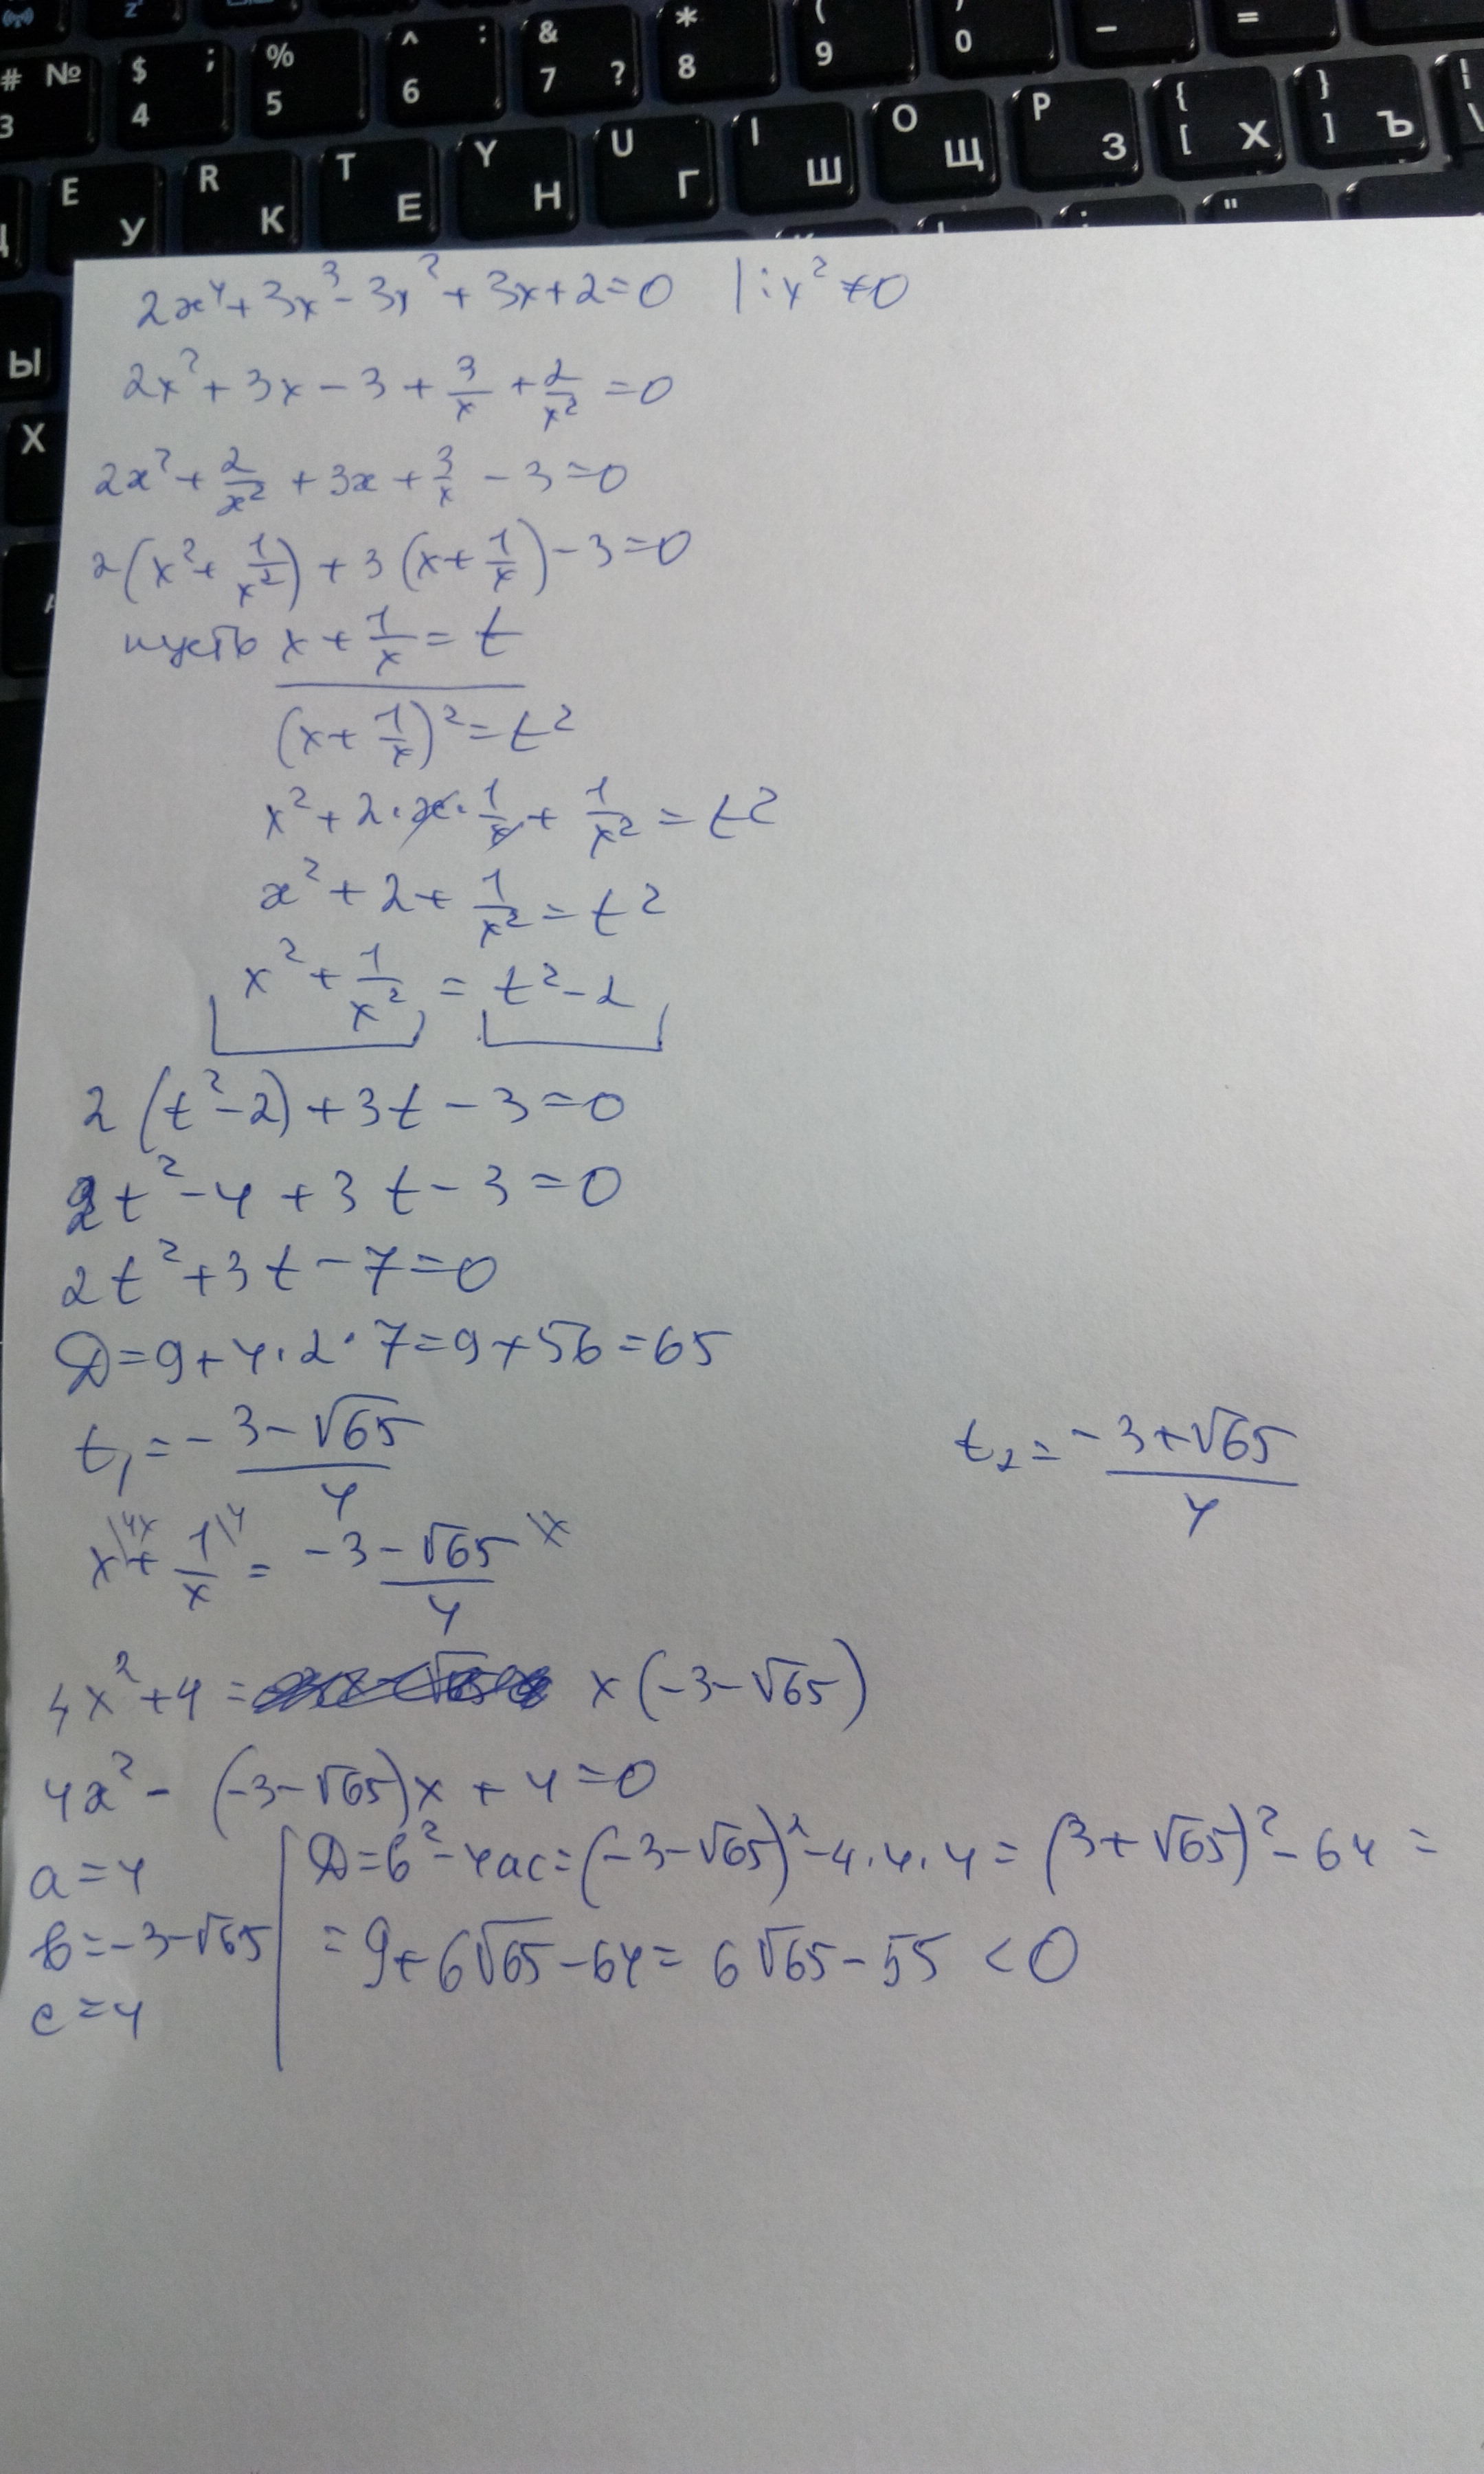 # № $ ; % ^ : & * ( ) _ =
3 4 5 6 7 ? 8 9 0
E R T Y U I O P { }
У К Е Н Г Ш Щ З [ Х ] Ъ
Ы "
X
2x⁴+3x³-3x²+3x+2=0 |:x²≠0
2x²+3x-3+3/x+2/x²=0
2x²+2/x²+3x+3/x-3=0
2(x²+1/x²)+3(x+1/x)-3=0
пусть x+1/x=t
(x+1/x)²=t²
x²+2·x·1/x+1/x²=t²
x²+2+1/x²=t²
x²+1/x²=t²-2
2(t²-2)+3t-3=0
2t²-4+3t-3=0
2t²+3t-7=0
D=9+4·2·7=9+56=65
t₁=-3-√65/4 t₂=-3+√65/4
x\4x+1/x\4=-3-√65/4\x
4x²+4= x(-3-√65)
4x²-(-3-√65)x+4=0
a=4
b=-3-√65
c=4
D=b²-4ac=(-3-√65)²-4·4·4=(3+√65)²-64=
=9+6√65-64=6√65-55<0